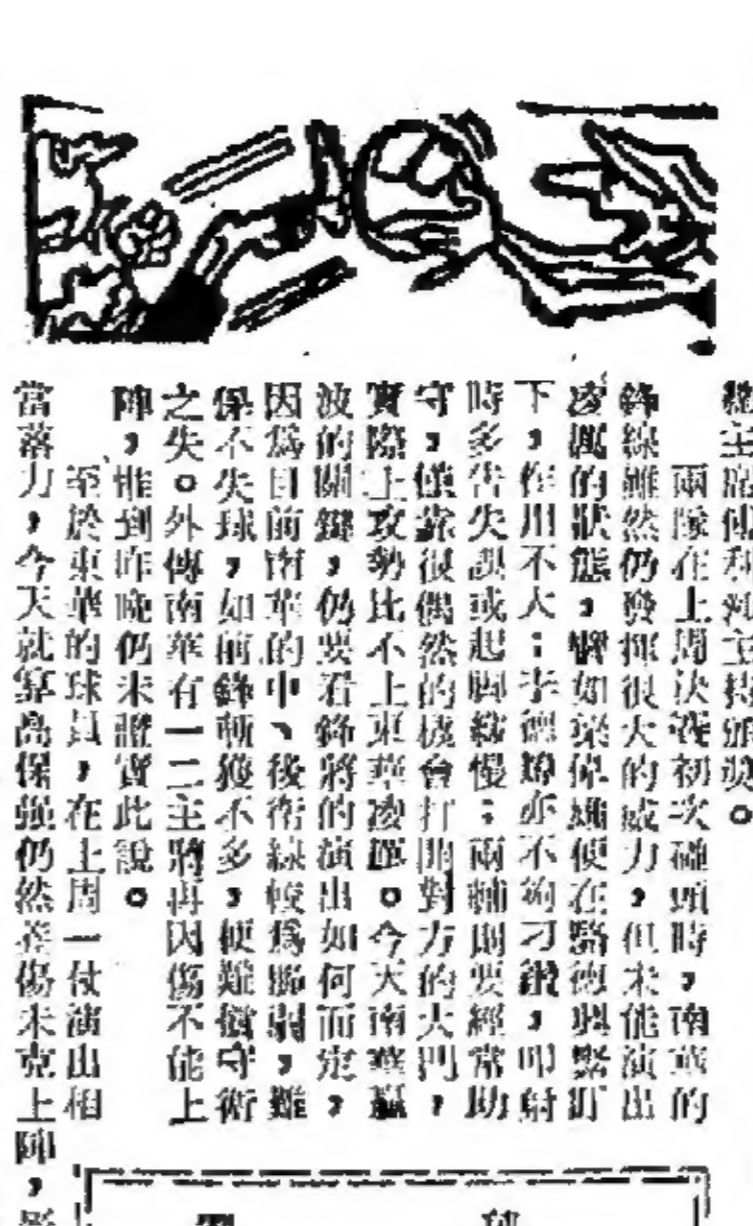 主席 主持頒獎。
兩隊在上周決戰初次碰頭時，南華的
鋒線雖然仍發揮很大的威力，但未能演出
凌厲的狀態，譬如梁偉雄便在駱德興緊釘
下，作用不大；李 亦不夠刁鑽，叩射
時多告失誤或起脚緩慢；兩輔則要經常助
守，僅靠很偶然的機會打開對方的大門，
實際上攻勢比不上東華凌厲。今天南華贏
波的關鍵，仍要看鋒將的演出如何而定，
因爲目前南華的中、後衛線較爲脆弱，難
保不失球，如前鋒斬獲不多，便難償守衛
之失。外傳南華有一二主將再因傷不能上
陣，惟到昨晚仍未證實此說。
至於東華的球員，在上周一仗演出相
當落力，今天就算高保强仍然 傷未克上
陣，影